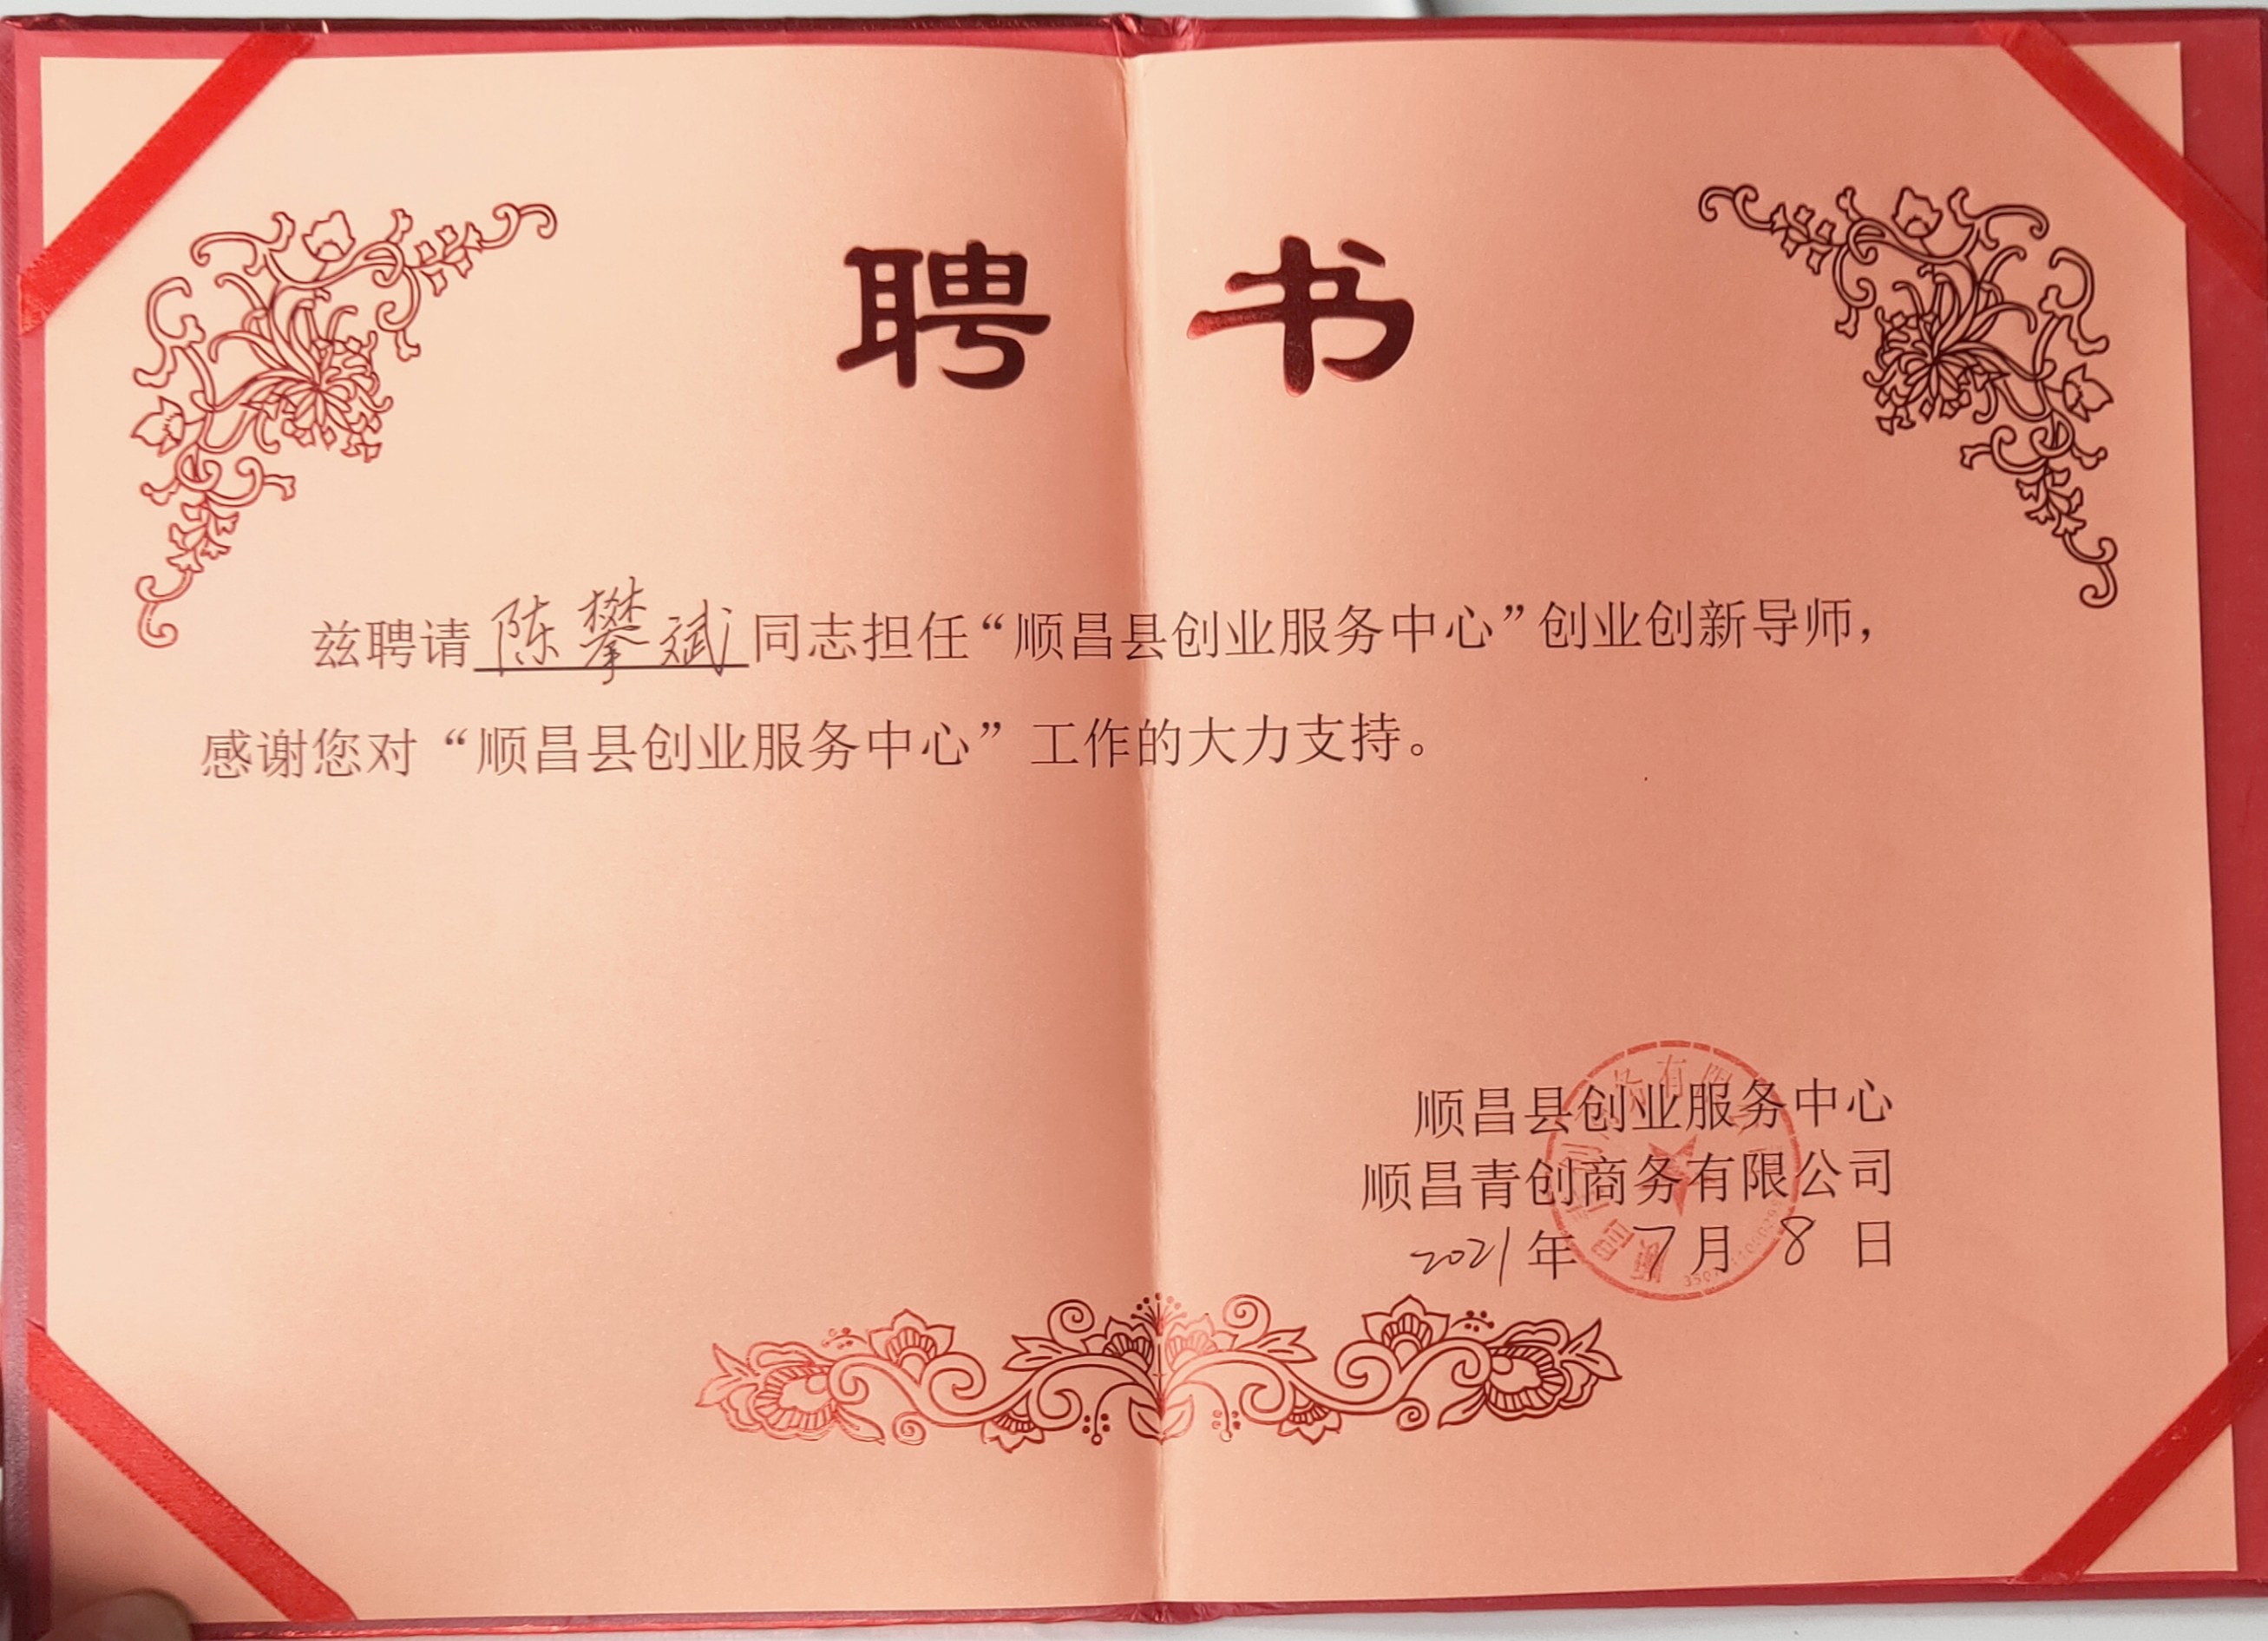 聘书
兹聘请陈攀斌同志担任“顺昌县创业服务中心”创业创新导师，
感谢您对“顺昌县创业服务中心”工作的大力支持。
顺昌县创业服务中心
顺昌青创商务有限公司
2021年7月8日